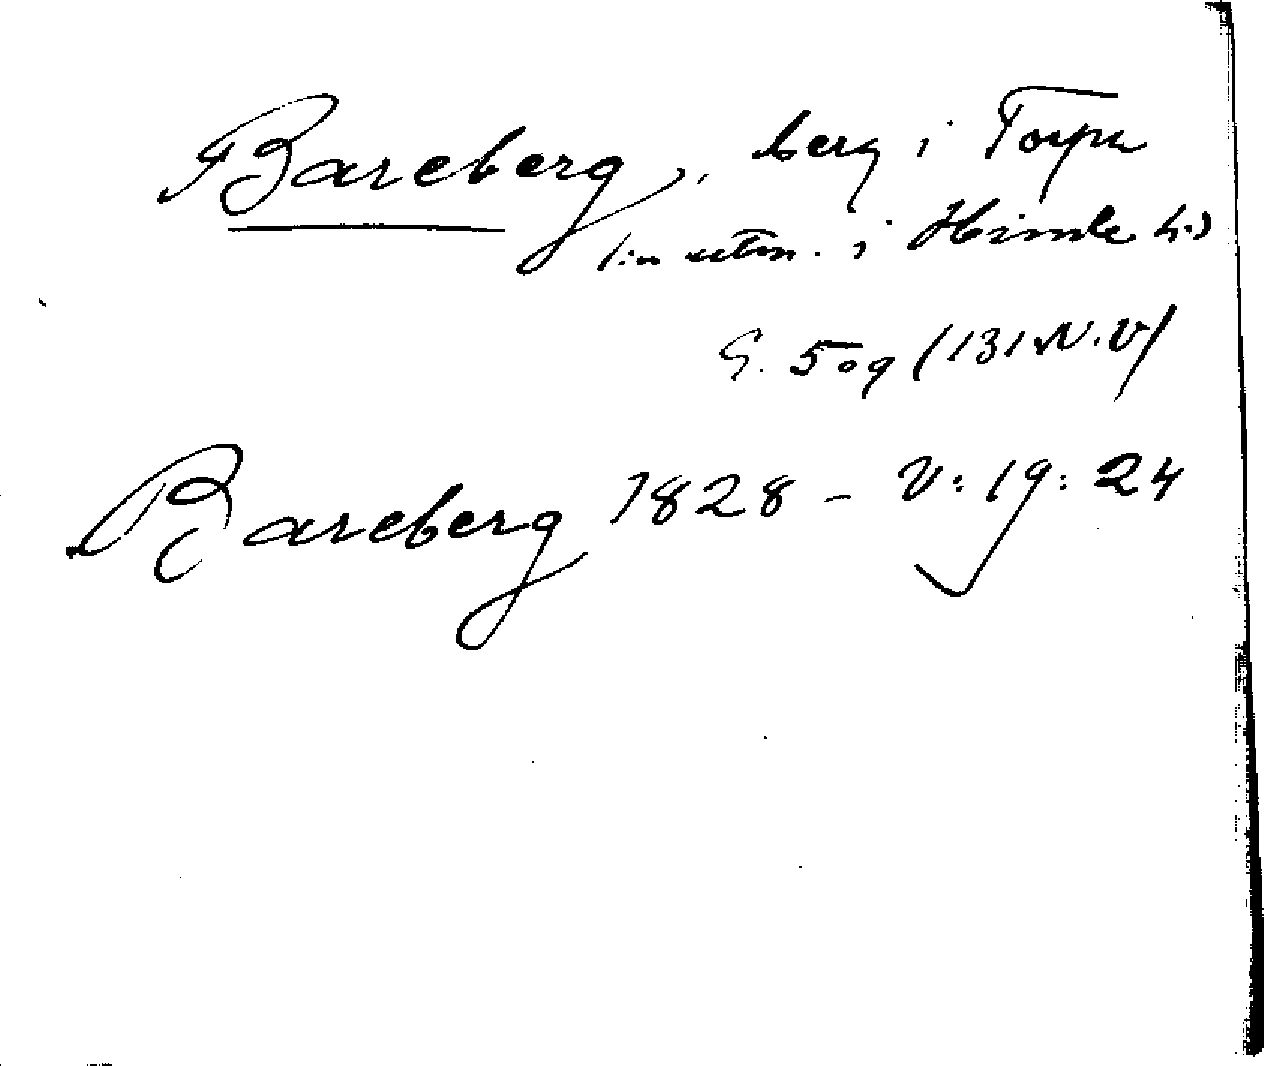 Bareberg, berg i Torpa
i Himle h.)
G. 509 (131 N.V)
Bareberg 1828 - V: 19: 24